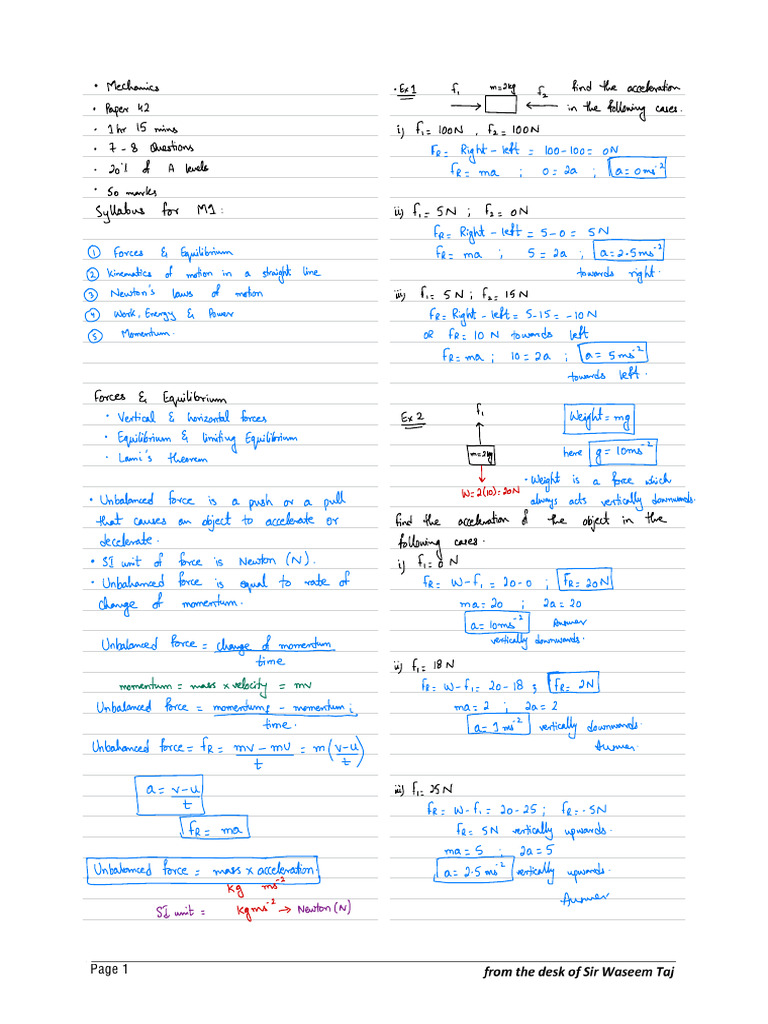 • Mechanics
• Paper 42
• 1 hr 15 mins
• 7 - 8 Questions
• 20% of A levels
• 50 marks
Syllabus for M1:
① Forces & Equilibrium
② Kinematics of motion in a straight line
③ Newton's laws of motion
④ Work, Energy & Power
⑤ Momentum.
Forces & Equilibrium
• Vertical & horizontal forces
• Equilibrium & limiting Equilibrium
• Lami's theorem
• Unbalanced force is a push or a pull
that causes an object to accelerate or
decelerate.
• SI unit of force is Newton (N).
• Unbalanced force is equal to rate of
change of momentum.
Unbalanced force = change of momentum
time
momentum = mass x velocity = mv
Unbalanced force = momentum f - momentum i
time.
Unbalanced force = fR = mv - mu = m(v-u)
t t
a = v-u
t
fR = ma
Unbalanced force = mass x acceleration
kg ms⁻²
SI unit = kgms⁻² → Newton (N)
• Ex 1 f₁ m=2kg f₂ find the acceleration
in the following cases.
i) f₁ = 100N , f₂ = 100N
FR = Right - left = 100 - 100 = 0N
fR = ma ; 0 = 2a ; a = 0ms⁻²
ii) f₁ = 5N ; f₂ = 0N
FR = Right - left = 5 - 0 = 5N
fR = ma ; 5 = 2a ; a = 2.5ms⁻²
towards right.
iii) f₁ = 5N ; f₂ = 15N
FR = Right - left = 5 - 15 = -10N
OR fR = 10 N towards left
fR = ma ; 10 = 2a ; a = 5ms⁻²
towards left.
Ex 2 f₁ Weight = mg
m=2kg here g = 10ms⁻²
W = 2(10) = 20N • Weight is a force which
always acts vertically downwards.
find the acceleration of the object in the
following cases.
i) f₁ = 0 N
fR = W - f₁ = 20 - 0 ; fR = 20N
ma = 20 ; 2a = 20
a = 10ms⁻² Answer
vertically downwards.
ii) f₁ = 18N
fR = W - f₁ = 20 - 18 ; fR = 2N
ma = 2 ; 2a = 2
a = 1ms⁻² vertically downwards.
Answer.
iii) f₁ = 25N
fR = W - f₁ = 20 - 25 ; fR = -5N
fR = 5N vertically upwards.
ma = 5 ; 2a = 5
a = 2.5 ms⁻² vertically upwards.
Answer
Page 1
from the desk of Sir Waseem Taj